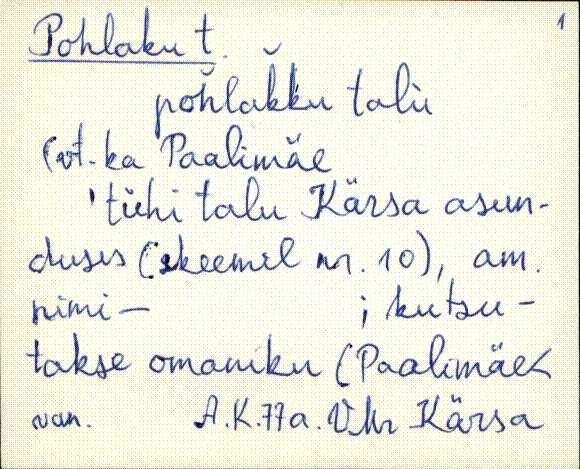 1
Pohlaku t.
pŏhlakk̆u talù
(vt. ka Paalimäe
'tühi talu Kärsa asun-
duses (skeemil nr. 10), am.
nimi — ; kutsu-
takse omaniku (Paalimäe<
van. A.K.77a. VMr Kärsa